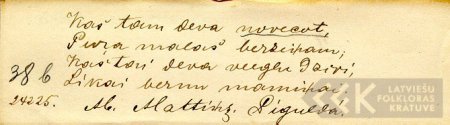 Kas tam deva novecot,
Purja malas berziņam;
Kas tai deva vieglu dzivi,
Likai bernu mamiņai.
386
24225.
Ab. Mattiss, Siguldā.
LATVIEŠU
FOLKLORAS
KRATUVE